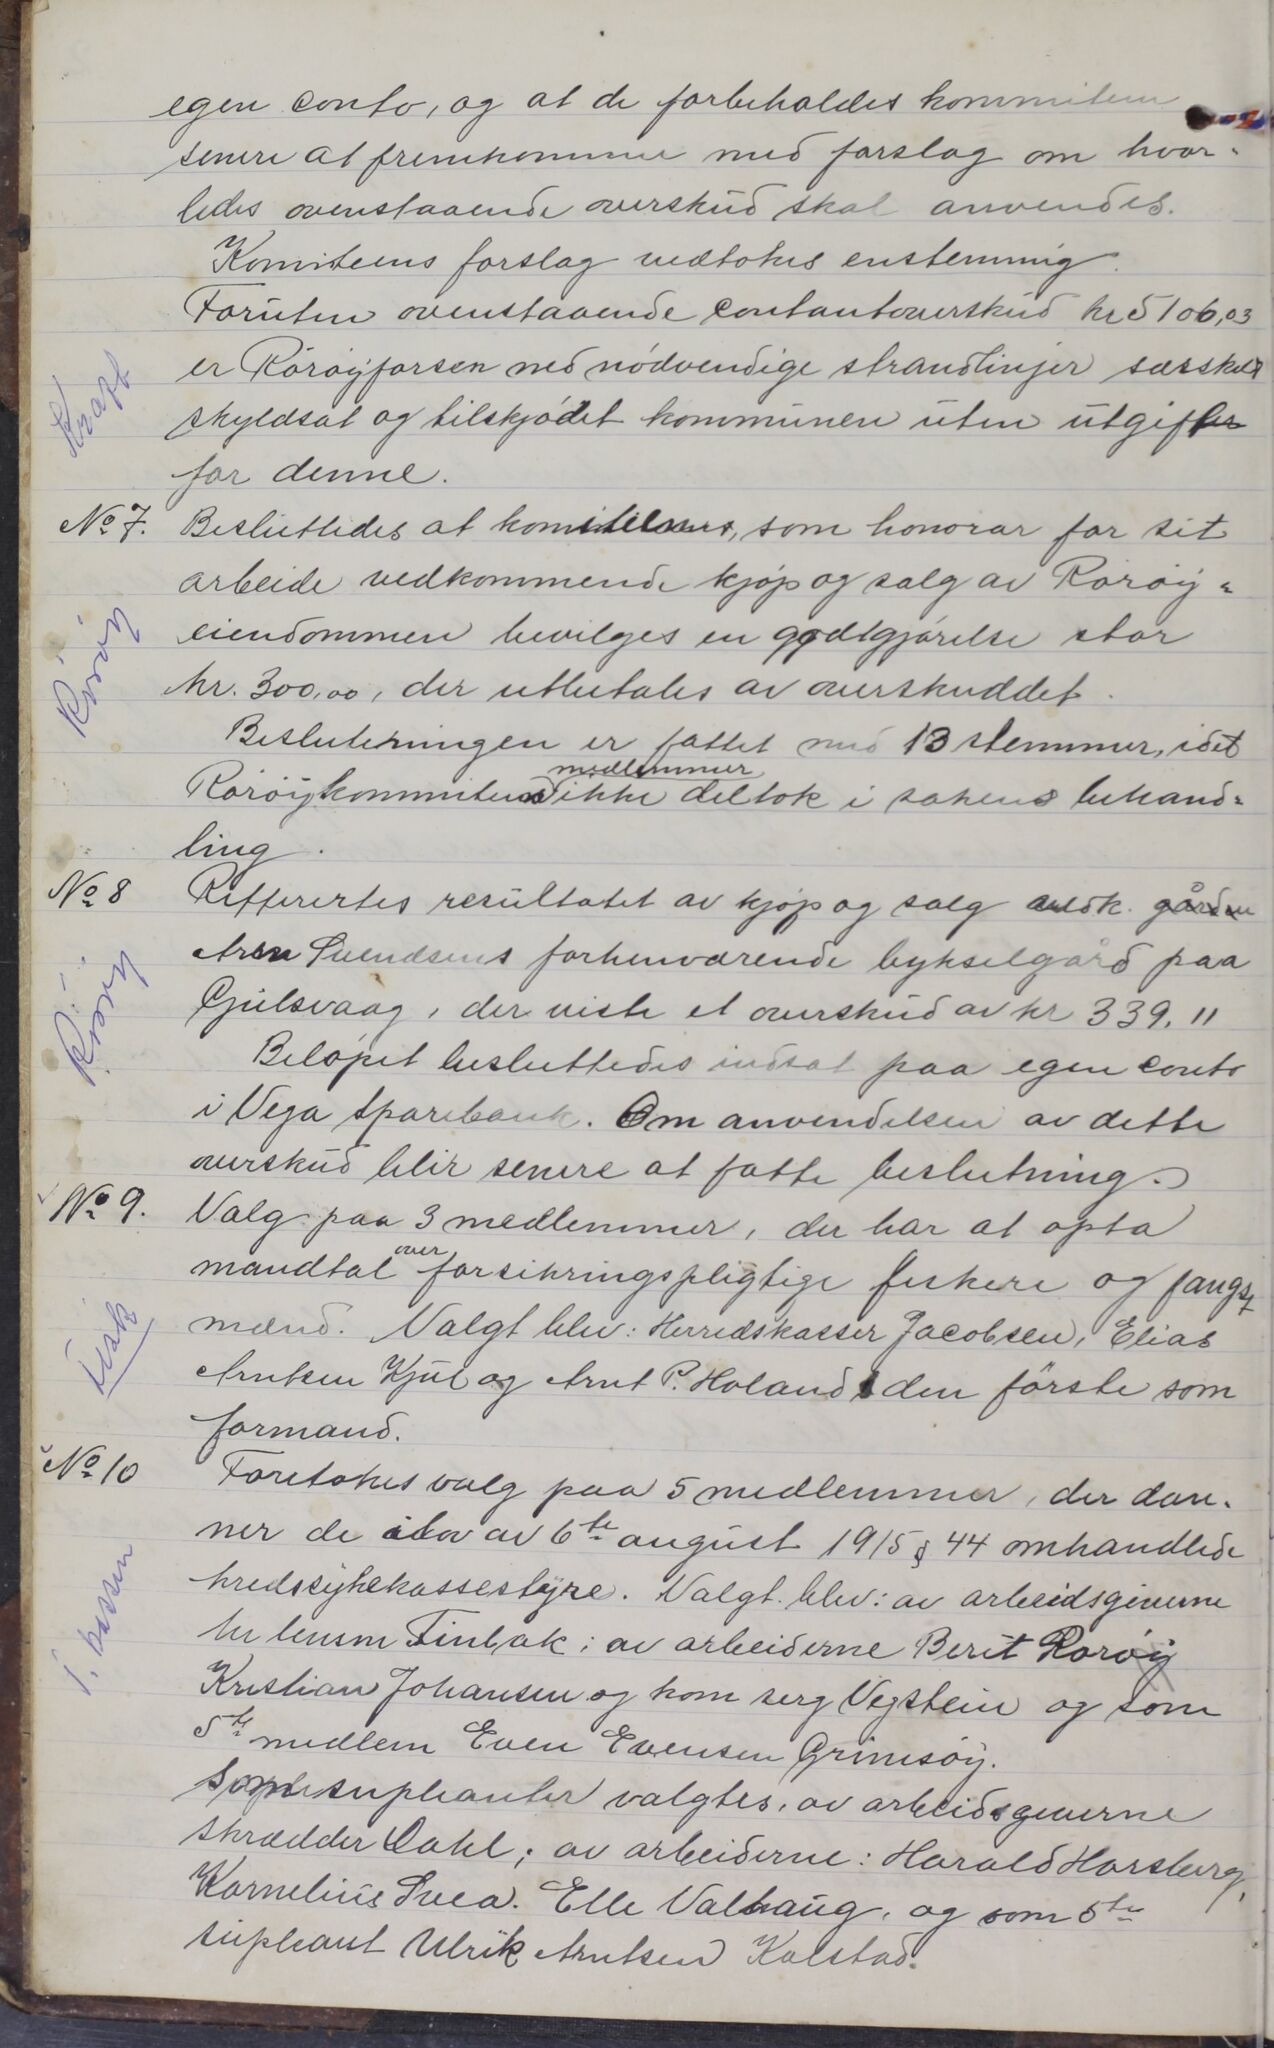 egen conto, og at de forbeholdes kommiteen
senere at fremkomme med forslag om hvor-
ledes ovenstaaende overskud skal anvendes.
Komiteens forslag vedtokes enstemmig.
Foruten ovenstaaende contantoverskud kr 5106,03
er Rörøyforsen med nödvendige strandlinjer særskilt
Kraft
skyldsat og tilskjödet kommunen uten utgifter
for denne.
No 7. Besluttedes at komiteens, som honorar for sit
arbeide vedkommende kjøp og salg av Rörøy-
Rörøy
eiendommen bevilges en godtgjörelse stor
kr. 300,00, der utbetales av overskuddet.
Beslutningen er fattet med 13 stemmer, idet
medlemmer
Rörøykommiteens ikke deltok i sakens behand-
ling.
No 8 Refferertes resultatet av kjøp og salg vedk. gården
Arn Svendsens forhenværende bykselgård paa
Rörøy
Gulsvaag, der viste et overskud av kr 339,11
Belöpet besluttedes indsat paa egen conto
i Vega Sparebank. Om anvendelsen av dette
overskud blir senere at fatte beslutning.
No 9. Valg paa 3 medlemmer, der har at opta
over
mandtal forsikringspligtige fiskere og fangst
mænd. Valgt blev: Herredskasser Jacobsen, Elias
Fisk
Arntsen Kjul og Arnt P. Holand den förste som
formand.
No 10 Foretokes valg paa 5 medlemmer, der dan-
ner de i lov av 6te august 1915 § 44 omhandlede
kredssykekassestyre. Valgt blev: av arbeidsgiverne
hr lensm Finbak; av arbeiderne Berit Rorøy
Kristian Johansen og kom serg Vegstein og som
5te medlem Even Evensen Grimsöy.
Som supleanter valgtes, av arbeidsgiverne
skrædder Dahl; av arbeiderne: Harald Horsberg,
Kornelius Svea. Elle Valhaug, og som 5te
supleant Ulrik Arntsen Kolstad.